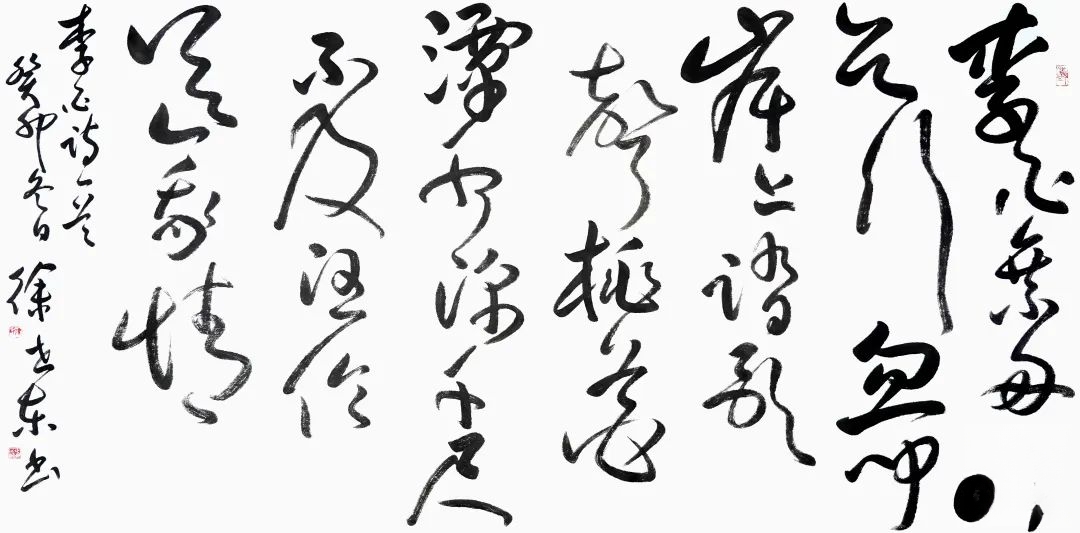 李白乘舟
欲行忽闻
岸上踏歌
聲桃花
潭水深千尺
不及汪伦
送我情
李白诗一首
癸卯冬日 徐世东书